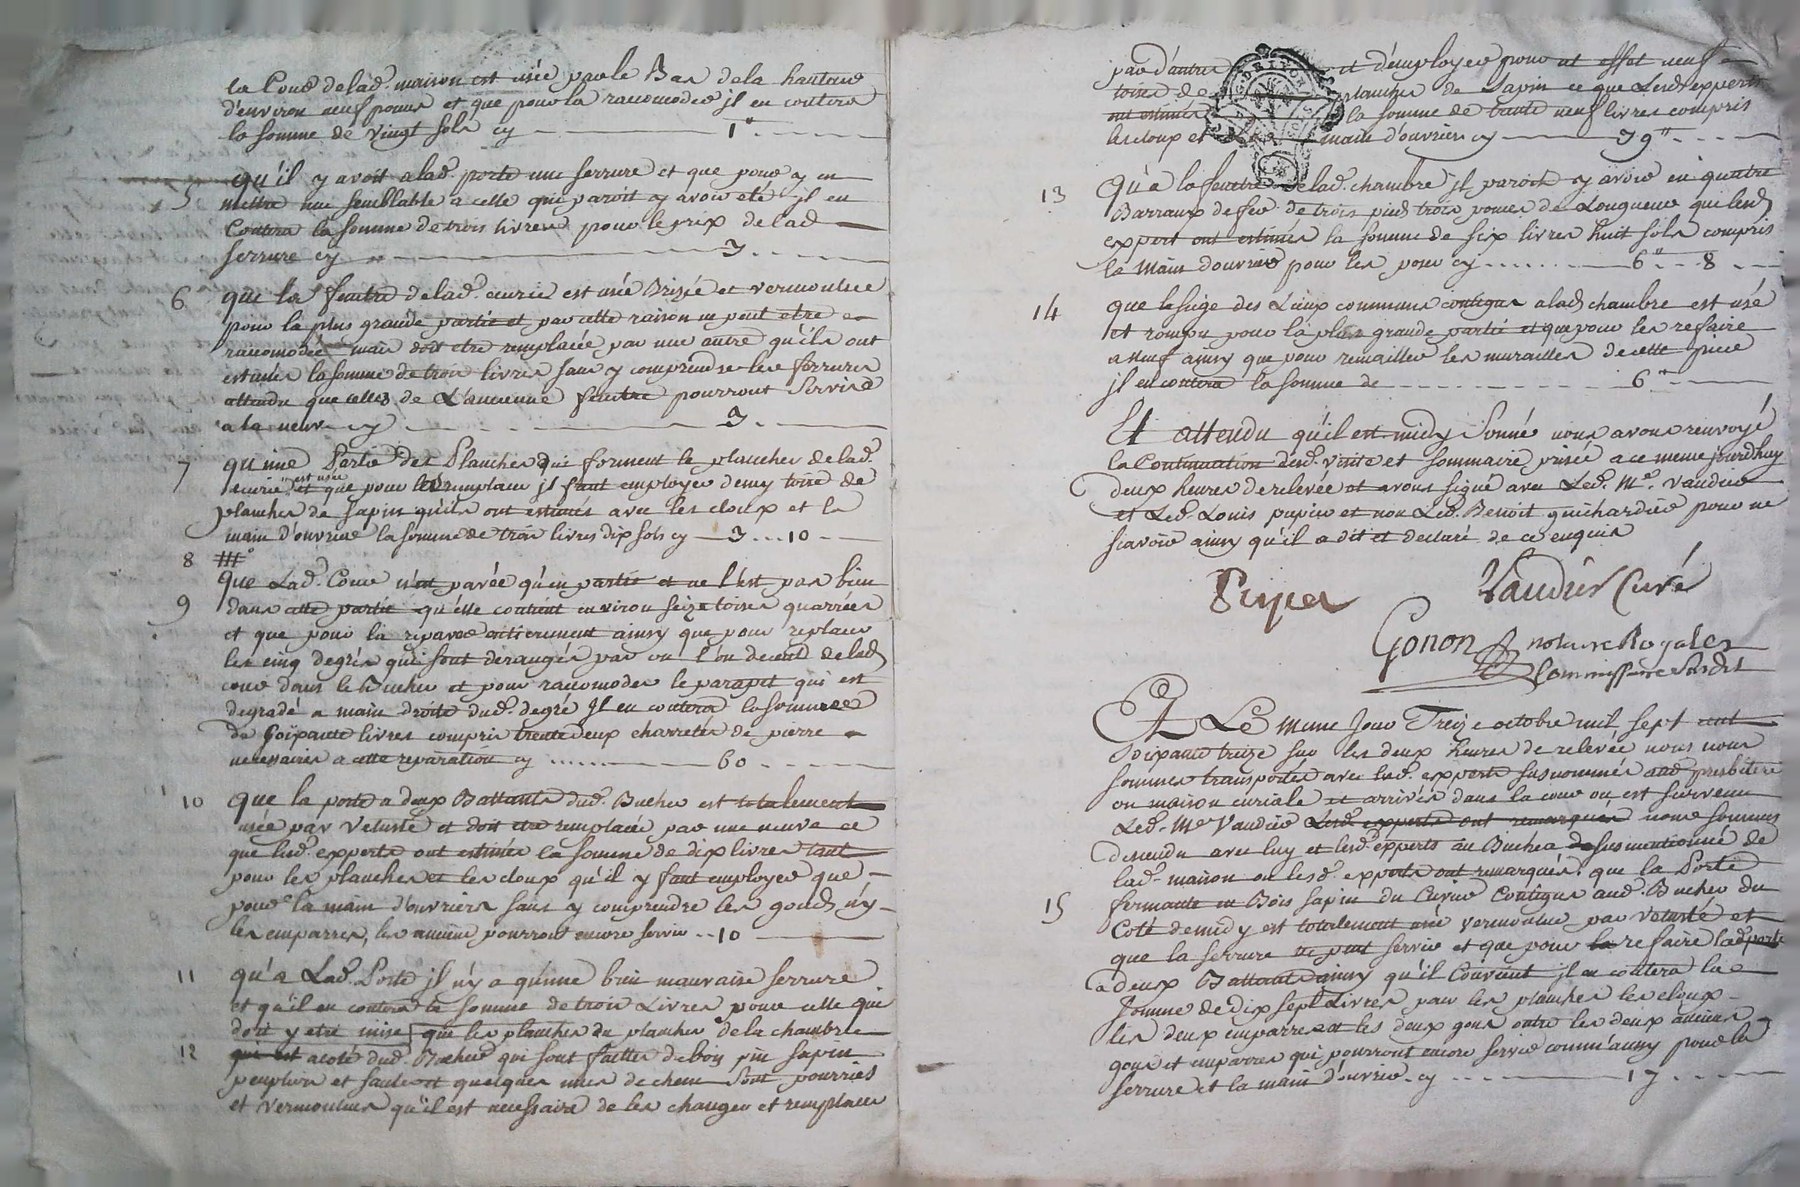 la Cour delad. maison est usée par le Bas dela hauteur
d'environ neuf pouces et que pour la racomoder jl en coutera
la somme de vingt sols cy 1"
qu'il y avoit a lad. porte une serrure et que pour y en
5 mettre une semblable a celle qui paroit y avoir eté jl en
Coutera la somme de trois livres pour le prix de lad
serrure cy 3
6 que la fenêtre delad. ecurie est usée Brizée et vermoulue
pour la plus grande partie et par cette raison ne peut etre
racomodée mais doit etre remplacée par une autre qu'ils ont
estimés la somme de trois livres sans y comprendre les ferrures
attendu que celles de L'ancienne fenêtre pourront Servire
a la neuve cy 3
7 qu'une Partie des Planches qui forment le plancher delad.
ecurie est usée et que pour les remplacer jl faut employer demy toise de
planches de sapin qu'ils ont estimés avec les cloux et la
main d'ouvrier la somme de trois livres dix sols cy 3 10
8
Que Lad. Cour n'est pavée qu'en partie et ne l'est pas bien
9 dans cette partie qu'elle contient environ seize toises quarrées
et que pour la reparer entierement ainsy que pour replacer
les cinq degrés qui sont derangés par ou l'on decent delad
cour dans le Bucher et pour racomoder le parapet qui est
degradé a main droite dud. degré Jl en coutera la somme
de soixante livres compris trente deux charretés de pierre
necessaires a cette reparation cy 60
10 que la porte a deux Battants dud. Bucher est totalement
usée par Vetusté et doit etre remplacée par une neuve ce
que lesd. experts ont estimés la somme de dix livres tant
pour les planches et les cloux qu'il y faut employer que
pour la main d'ouvriers sans y comprendre les gonds n'y
les emparres, les anciens pourront encore servir 10
11 qu'a Lad. Porte jl n'y a qu'une bien mauvaise serrure
et qu'il en coutera la somme de trois Livres pour celle qui
doit y etre mise que les planches du plancher de la chambre
12 qui est acoté dud. Bucher qui sont faittes de bois pin sapin
peuplier et saule et quelques unes de chene sont pourries
et vermoulues qu'il est necessaire de les changer et remplacer
par d'autres et d'employer pour cet effet neuf
toises de planches de Sapin ce que Lesd. experts
ont estimés la somme de trente neuf livres compris
les cloux et main d'ouvrier cy 39"
13 Qu'a la fenêtre delad. chambre jl paroit y avoir eu quatre
Barraux de fer de trois pieds trois pouces de Longueur que lesd
expert ont estimés la somme de six livres huit sols compris
la Main d'ouvrier pour les poser cy 6" 8
14 que le siege des Lieux communs contigus a lad chambre est usé
et rompu pour la plus grande partie et que pour les refaire
a neuf ainsy que pour remailler les murailles de cette piece
jl en coutera la somme de 6"
Et attendu qu'il est midy Sonné nous avons renvoyé
la Continuation desd. visite et sommaire prisée a ce meme jourd'huy
deux heures de relevée et avons signé avec Led. Me. Vaudier
et Led. Louis pupier et non Led. Benoit guichardier pour ne
sçavoir ainsy qu'il a dit et declaré de ce enquis
Pupier
Vaudier Curé
Gonon notaire Royal et
Commissaire Susdit
Et Le meme Jour Treize octobre mil sept cent
soixante treize sur les deux heures de relevée nous nous
sommes transportés avec lesd. experts susnommés aud. presbitere
ou maison curiale et arrivés dans la cour ou est survenu
Led. Me Vaudier Lesd. experts ont remarqués nous sommes
descendu avec luy et lesd. experts au Bucher susmentionné de
lad. maison ou lesd. experts ont remarqués que la Porte
15 fermante en Bois sapin du Cuvier Contigus aud. Bucher du
Coté de midy est totalement usé vermoulue par vetusté et
que la serrure ne peut servir et que pour la refaire lad. porte
a deux Battants ainsy qu'il Convient jl en coutera la
somme de dix sept Livres, pour les planches les cloux
les deux emparres et les deux gons outre les deux anciens
gons et emparres qui pourront encore servir comm'aussy pour la
serrure et la main d'ouvrier cy 17